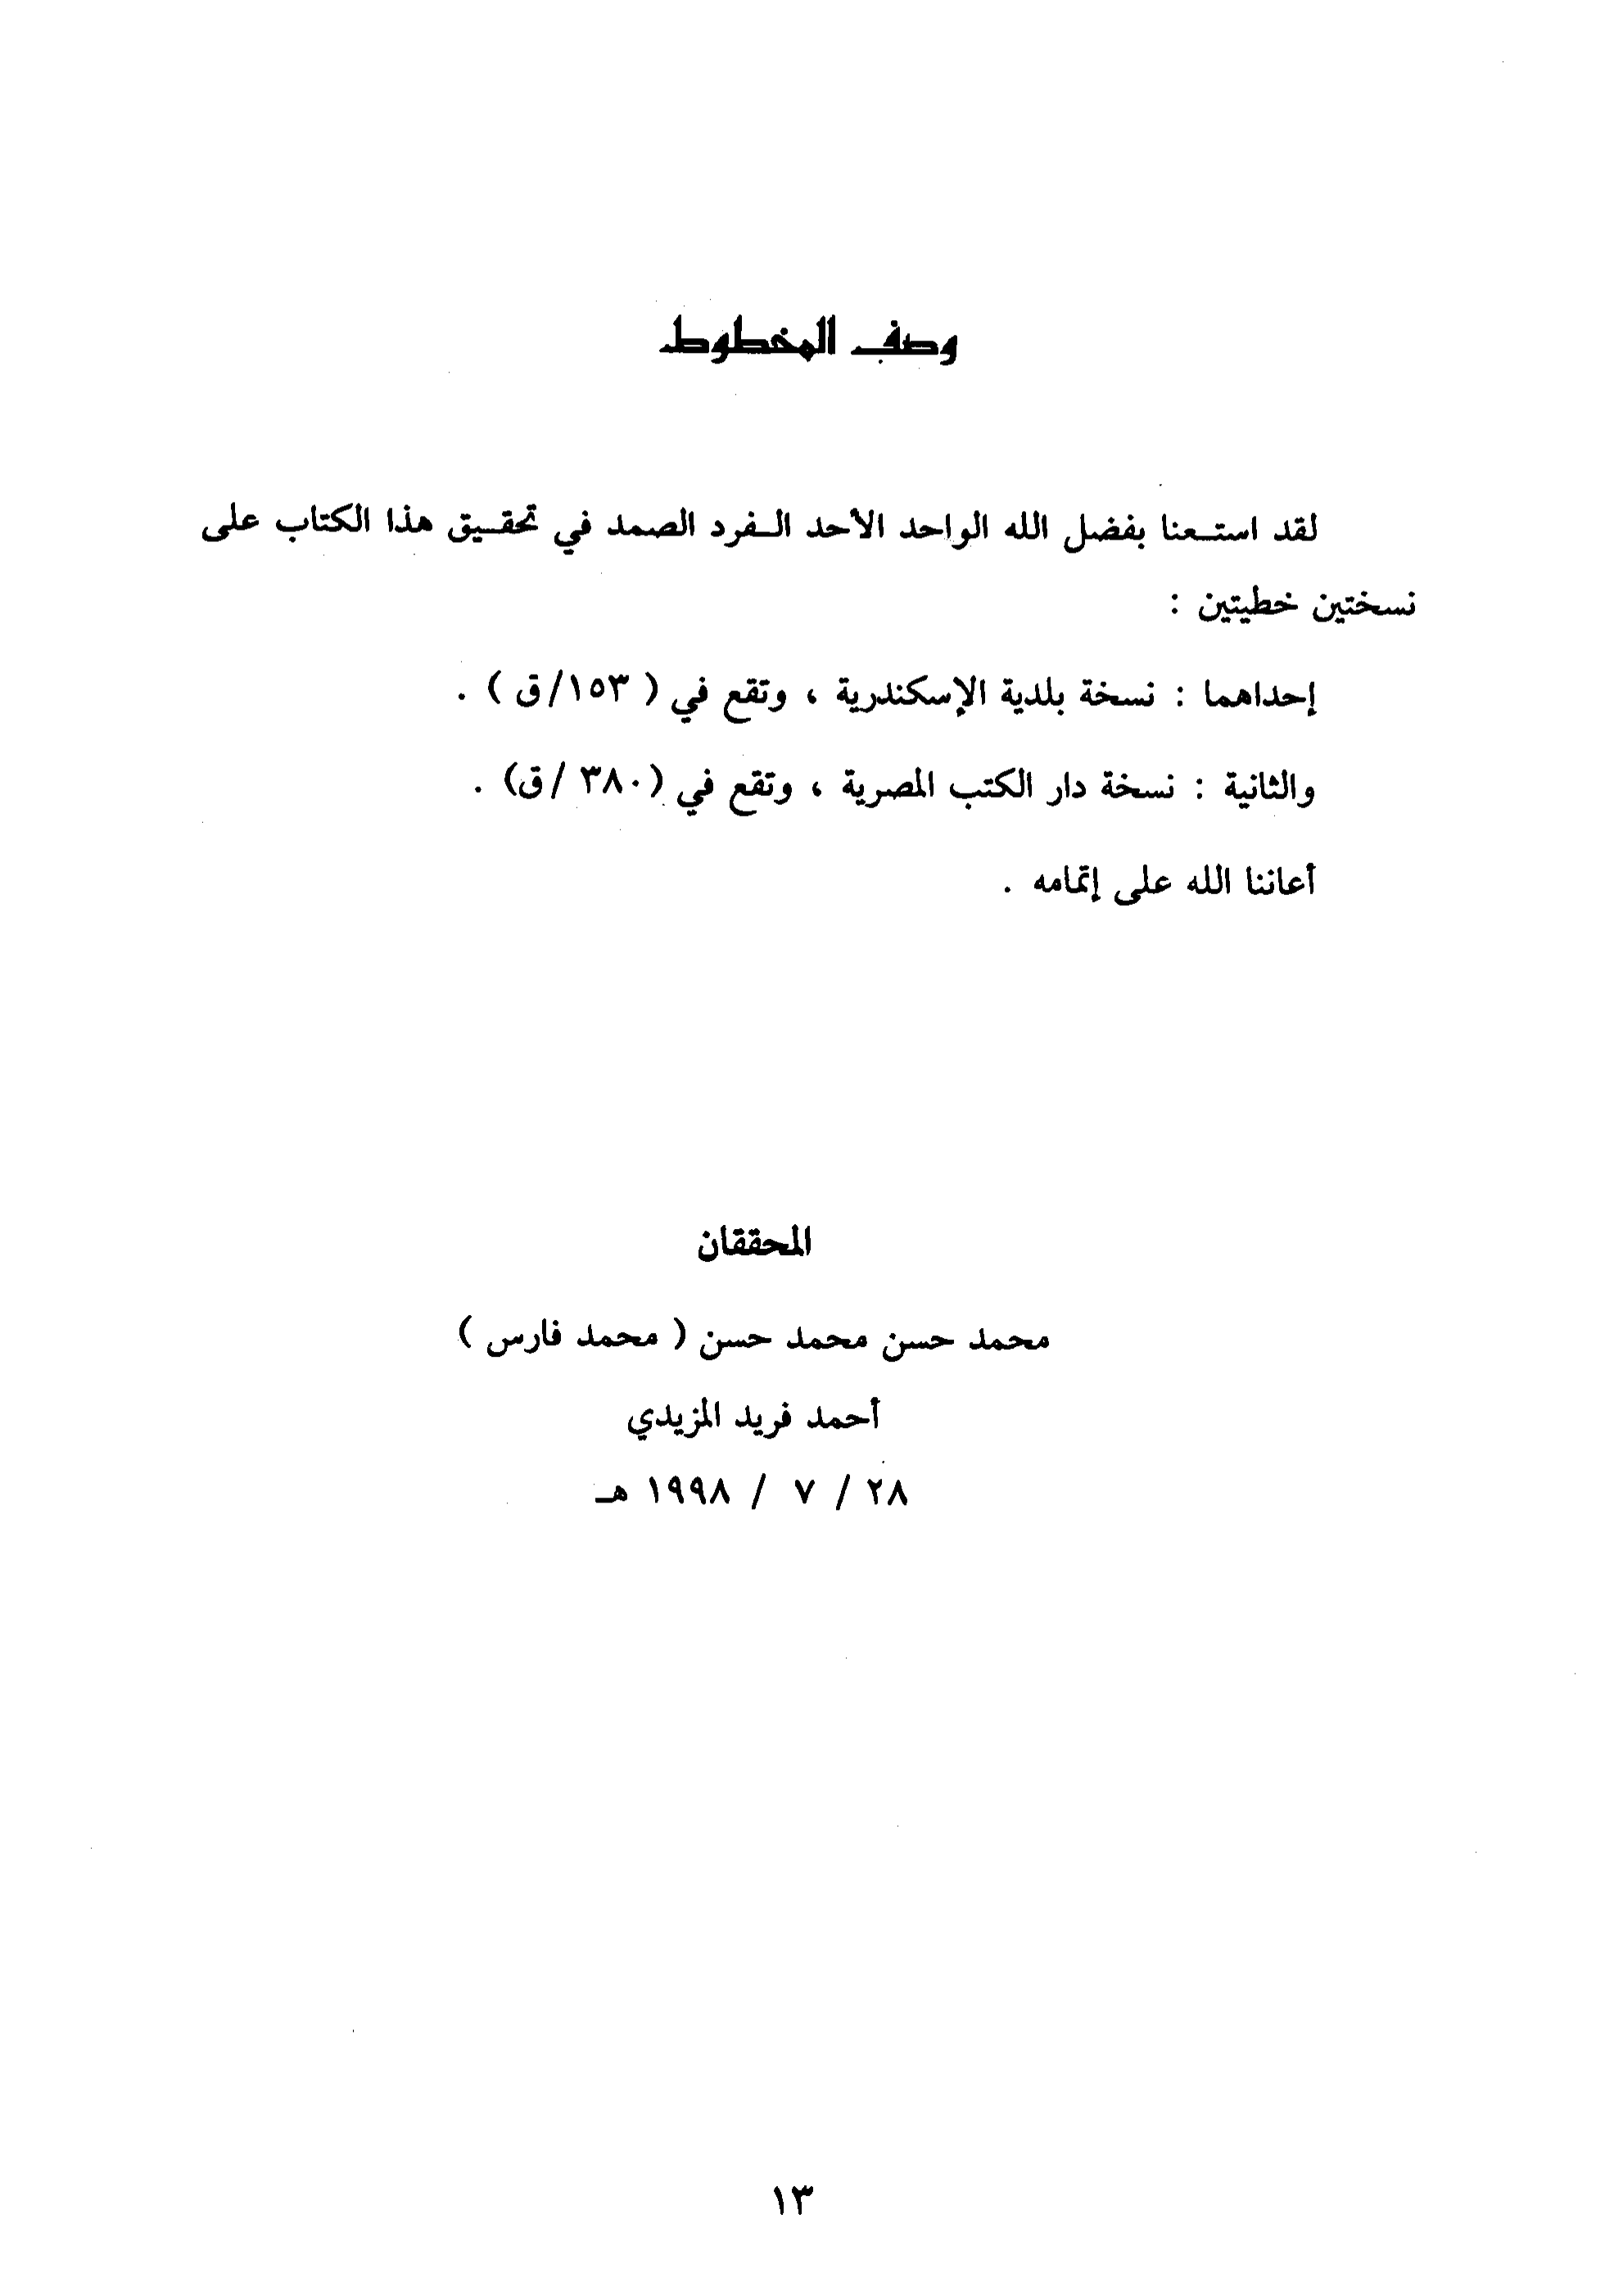 وصف المخطوط
لقد استعنا بفضل الله الواحد الأحد الفرد الصمد في تحقيق هذا الكتاب على
نسختين خطيتين :
إحداهما : نسخة بلدية الإسكندرية ، وتقع في ( ١٥٣/ق ) .
والثانية : نسخة دار الكتب المصرية ، وتقع في (٣٨٠ /ق) .
أعاننا الله على إتمامه .
المحققان
محمد حسن محمد حسن ( محمد فارس )
أحمد فريد المزيدي
٢٨ / ٧ / ١٩٩٨ هـ
١٣